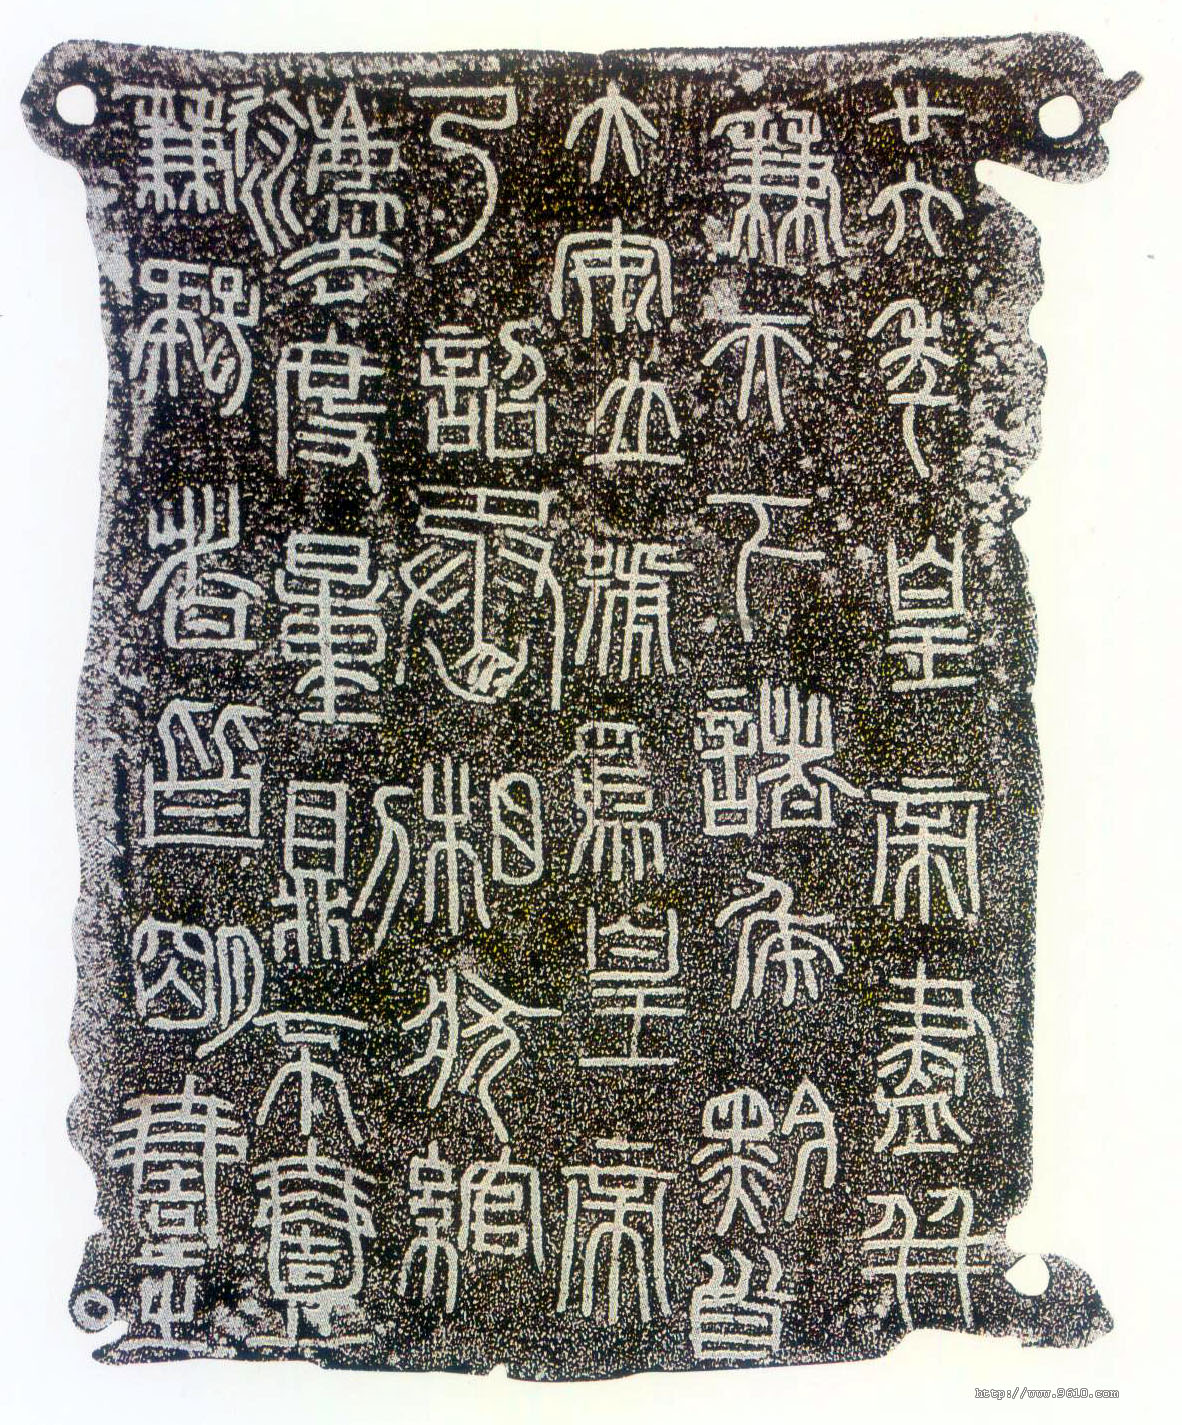 廿六年皇帝盡并
兼天下諸矦黔首
大安立號爲皇帝
乃詔丞相狀綰
灋度量則不壹
歉疑者皆明壹之
http://www.9610.com